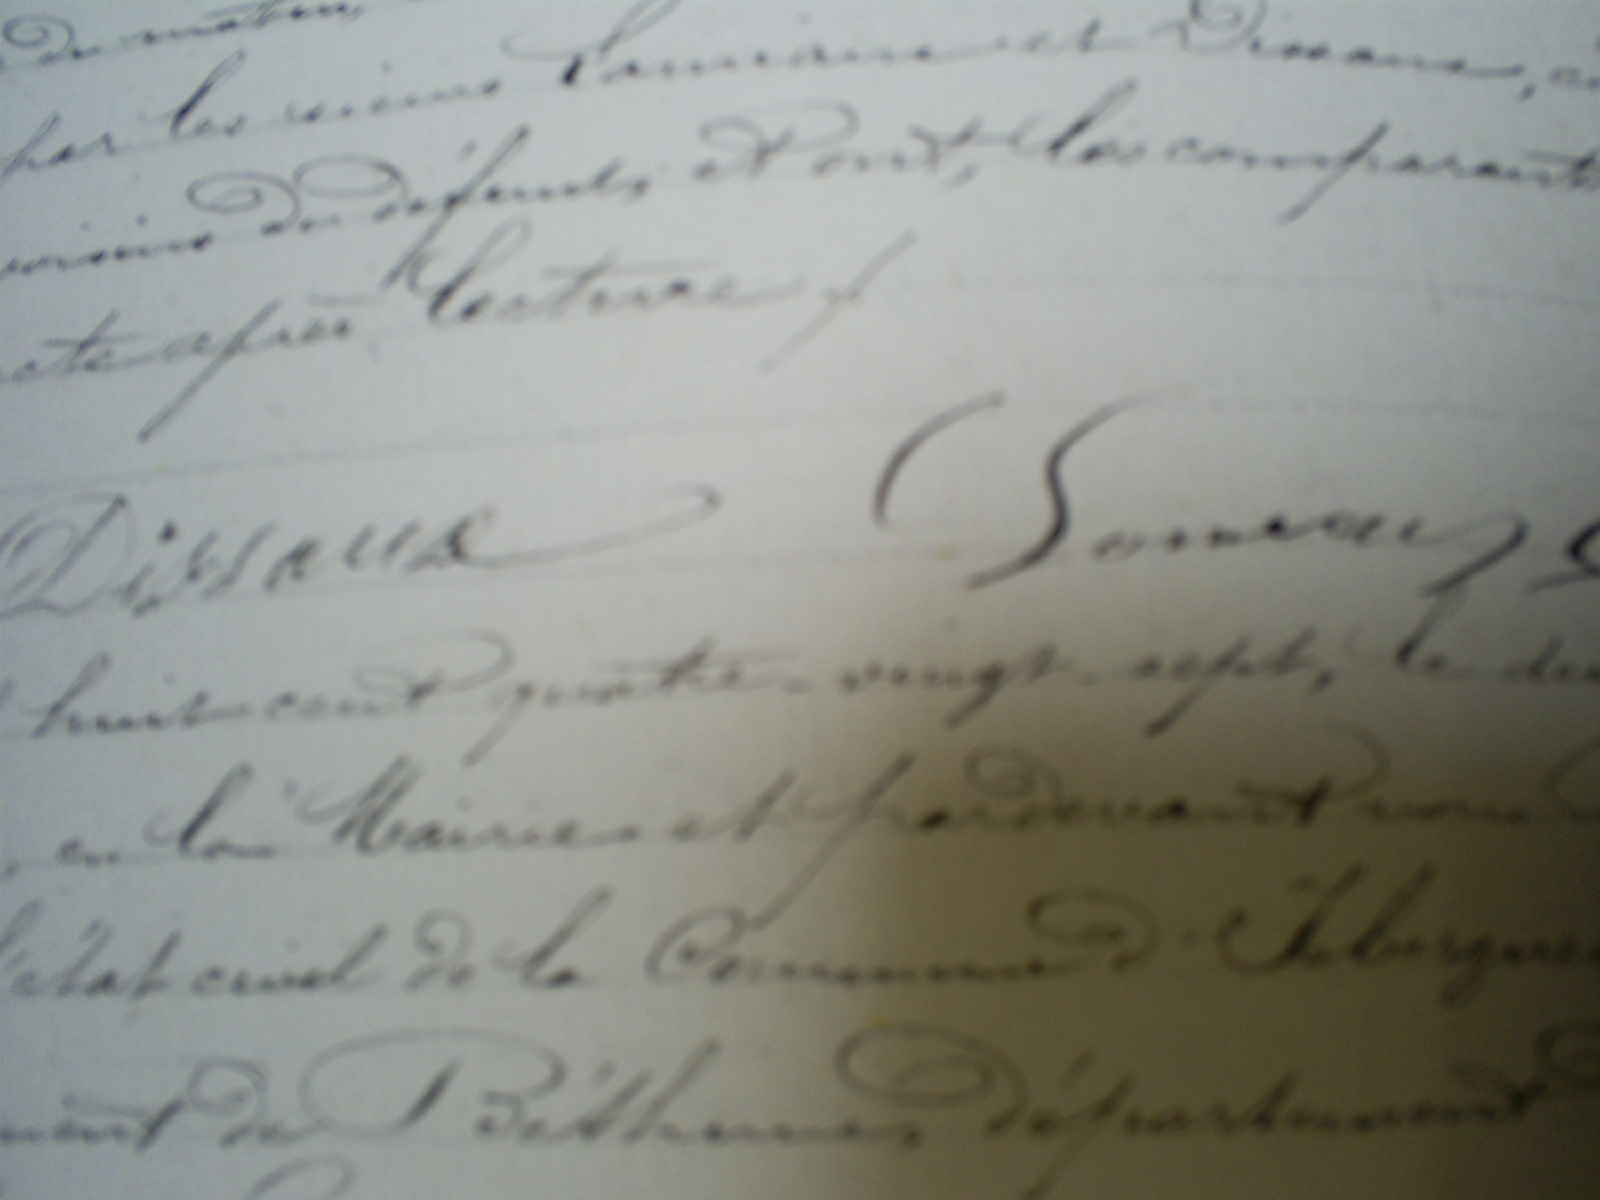 du matin,
par les sieurs et Dissaux,
voisins du défunt, et ont, les comparants
acte après lecture
Dissaux
huit cent quatre-vingt-sept, le
, en la Mairie et pardevant nous
l'état civil de la Commune d'Isbergues
ment de Béthune, département